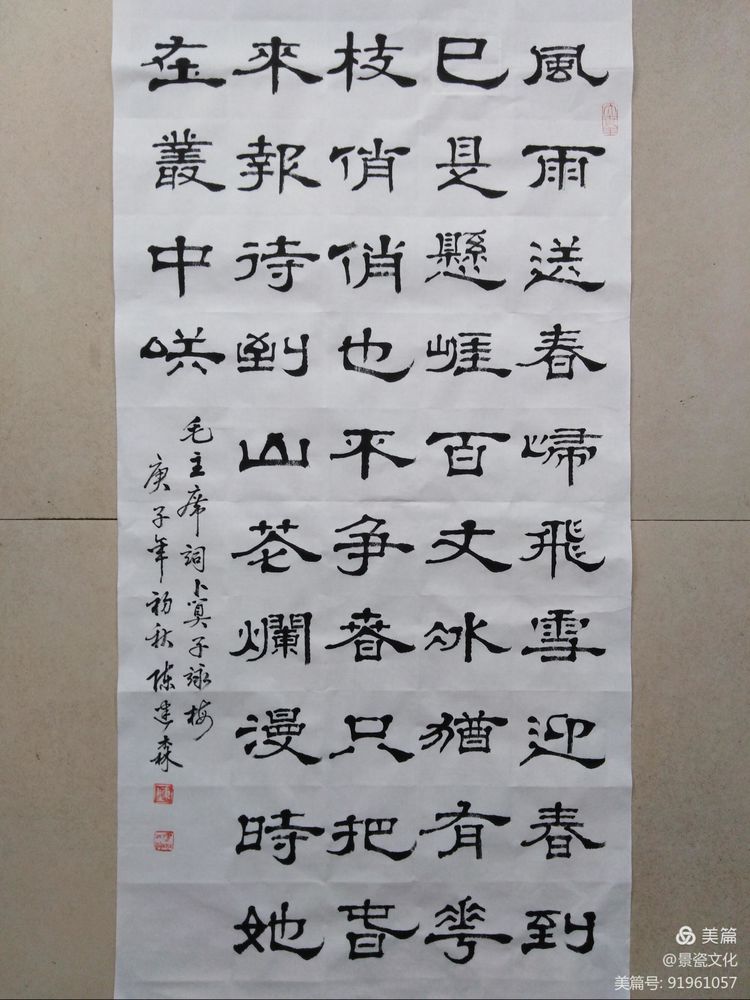 風雨送春歸飛雪迎春到
已是懸崖百丈冰猶有華
枝俏俏也不争春只把春
來報待到山花爛漫時她
在叢中咲
毛主席詞卜算子詠梅
庚子年初秋陈建森
美篇
@景瓷文化
美篇号: 91961057